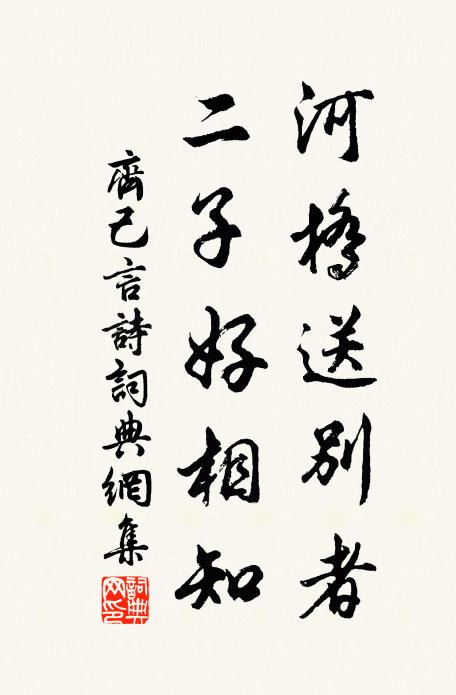 河橋送別者
二子好相知
齊己言詩詞典網集
詞典網印